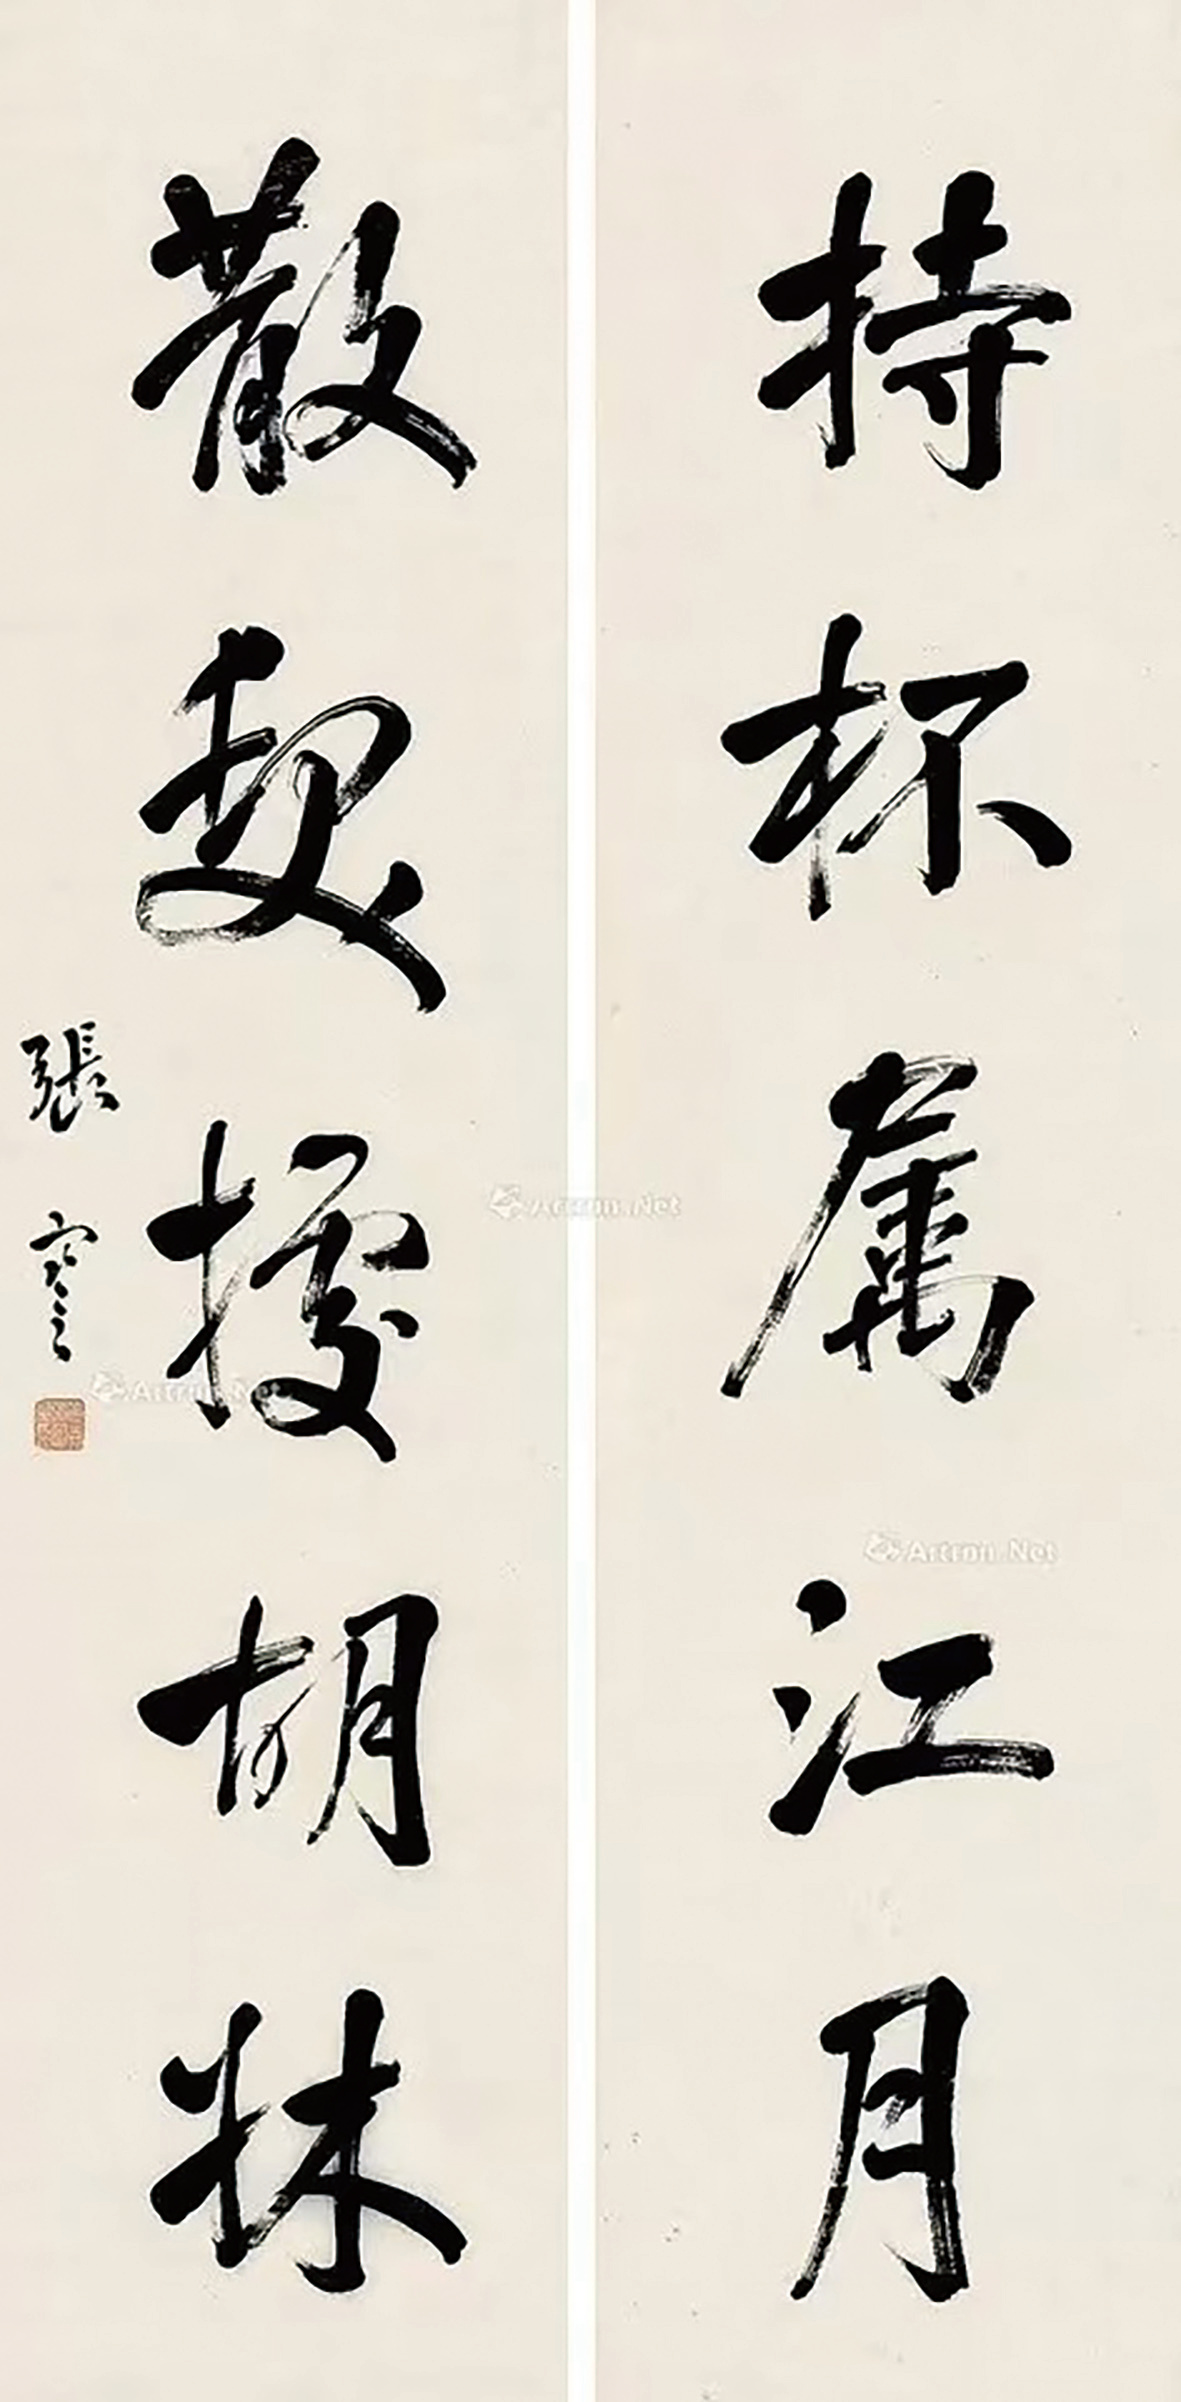 持杯属江月
散髮据胡牀
張謇
Artron.Net
Artron.Net
Artron.Net